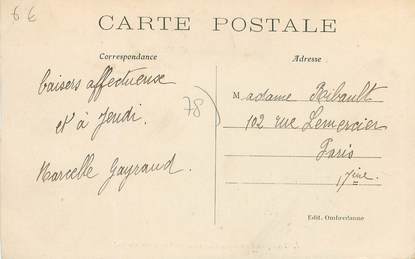 6 €
CARTE POSTALE
Correspondance
Adresse
baisers affectueuse
et à Jeudi.
Marcelle Gayraud.
78)
Madame Ribault
102 rue Lemercier
Paris
17ème
Edit. Ombredanne